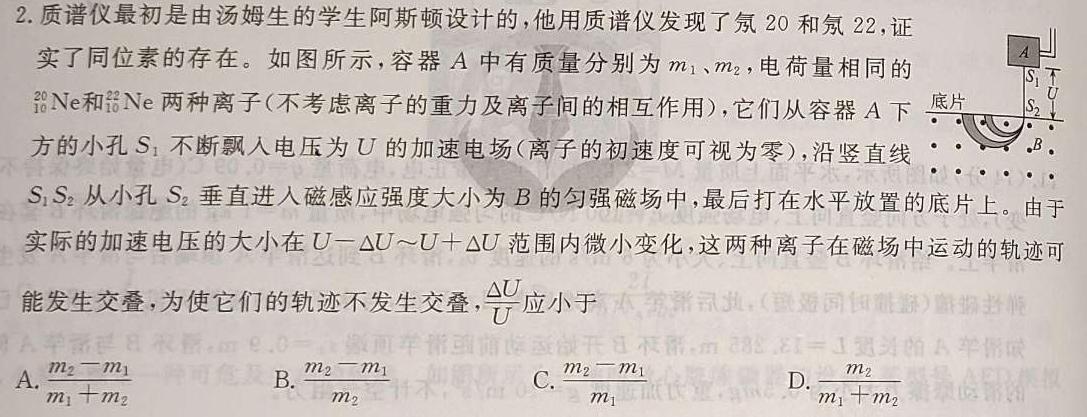 2.质谱仪最初是由汤姆生的学生阿斯顿设计的,他用质谱仪发现了氖 20 和氖 22,证
实了同位素的存在。如图所示,容器 A 中有质量分别为 m₁、m₂,电荷量相同的
²⁰₁₀Ne和²²₁₀Ne 两种离子(不考虑离子的重力及离子间的相互作用),它们从容器 A 下
方的小孔 S₁ 不断飘入电压为 U 的加速电场(离子的初速度可视为零),沿竖直线
S₁S₂ 从小孔 S₂ 垂直进入磁感应强度大小为 B 的匀强磁场中,最后打在水平放置的底片上。由于
实际的加速电压的大小在 U－ΔU～U＋ΔU 范围内微小变化,这两种离子在磁场中运动的轨迹可
能发生交叠,为使它们的轨迹不发生交叠,ΔU/U 应小于
A. (m₂－m₁)/(m₁＋m₂) B. (m₂－m₁)/m₂ C. (m₂－m₁)/m₁ D. m₂/(m₁＋m₂)
A
S₁
U
底片
S₂
B